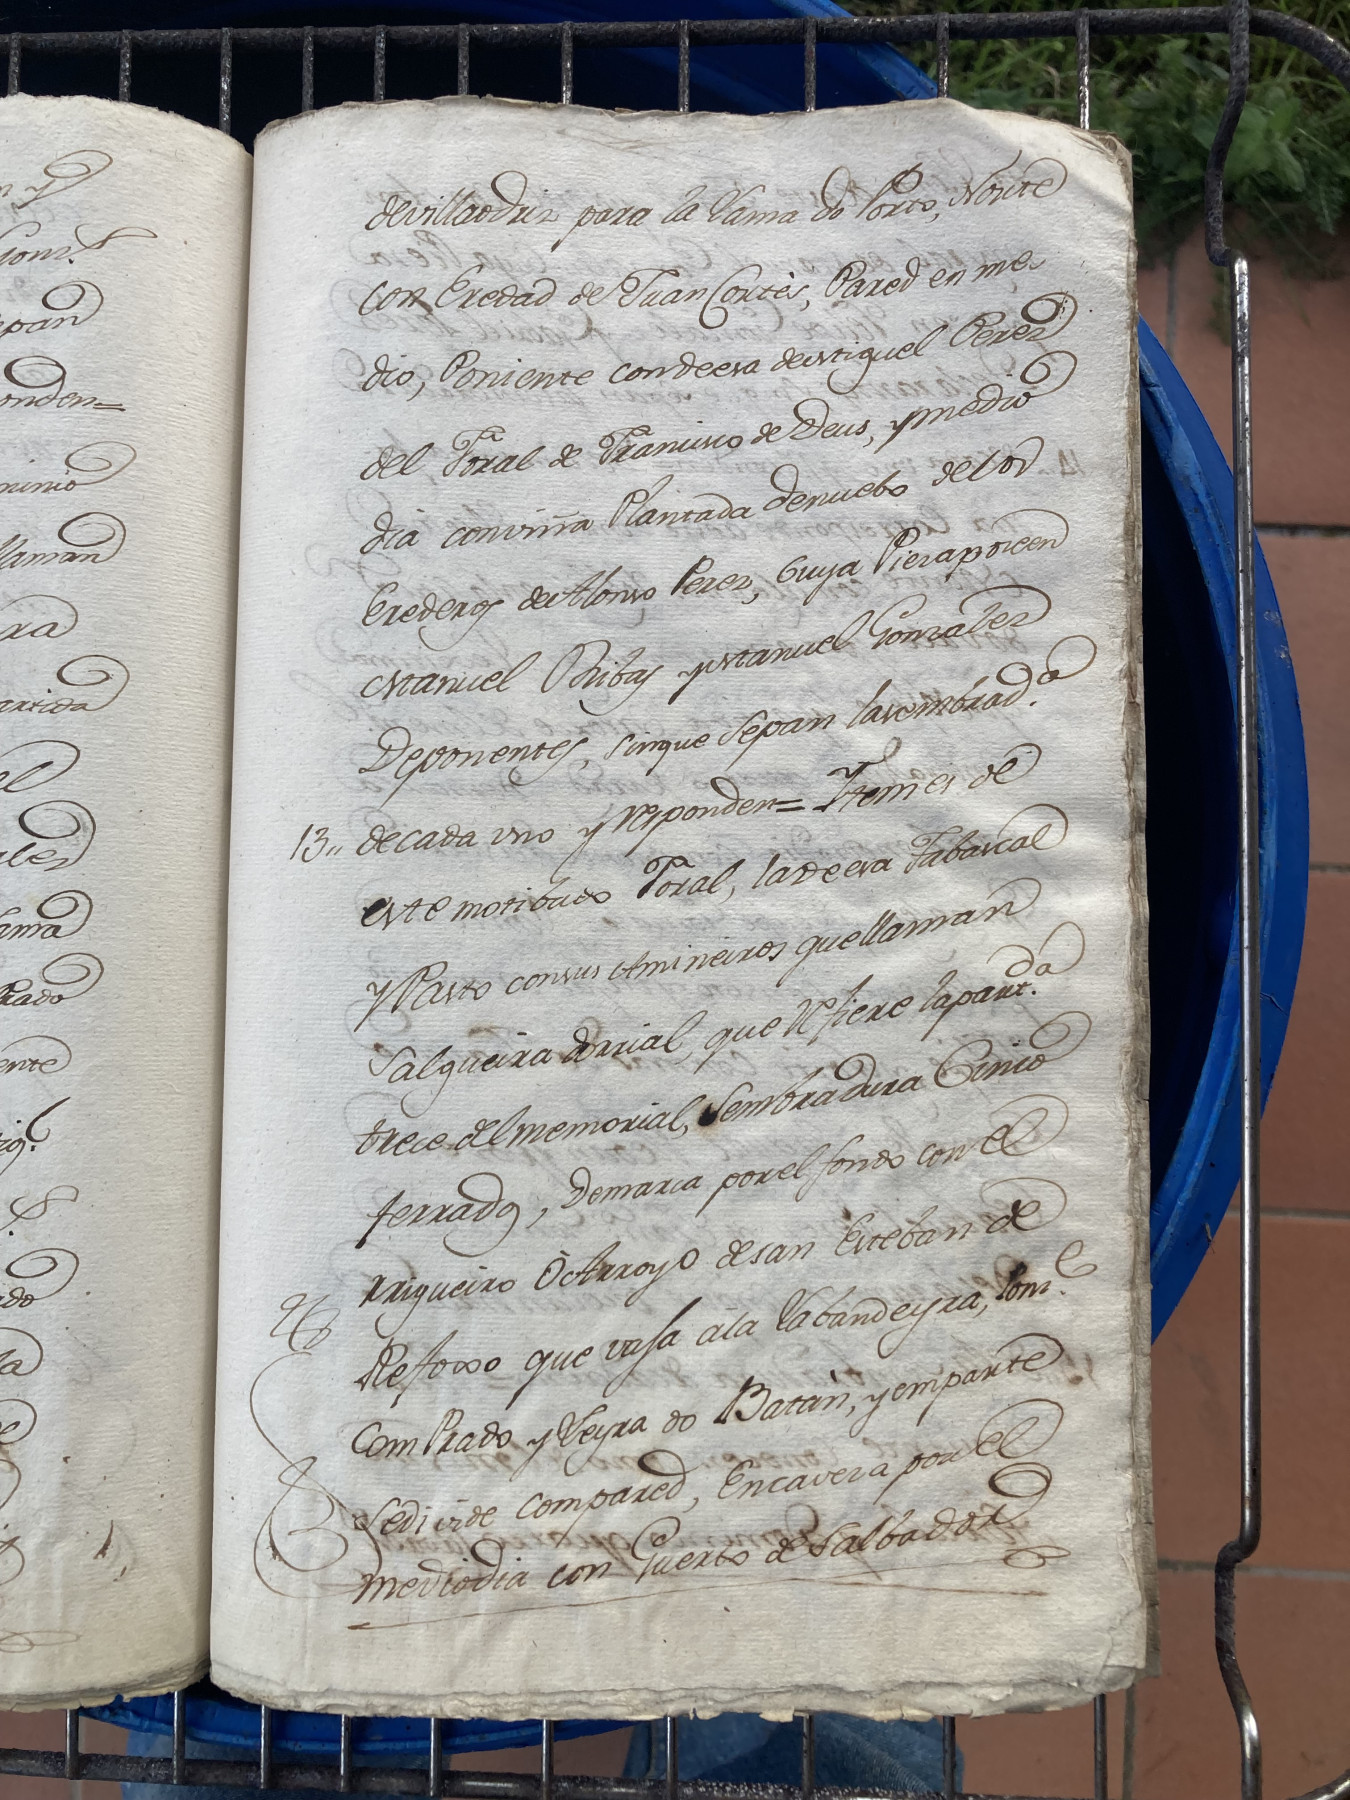 n y
Gonz.s
epan
onden=
minio
llaman
ra
artida
el
ales
ama
Prado
ente
de
la
devillaodriz para la Vama do Porto, Norte
con Eredad de Juan Cortès, Pared en me-
dio, Poniente condeesa de Miguel Perez
del Foral de Francisco de Deus, y medio
dia conviña Plantada denuebo delos
Erederos de Alonso Perez, Cuya Pieza poseen
Manuel Ribas y Manuel Gonzalez
Deponentes, sinque sepan lasembrad.a
13,, decada uno y responden= Ytem es de
este motibado Foral, ladeesa Tabascal
y Pasto consus Amineiros que llaman
Salgueira dorrial, que refiere lapart.da
trece del memorial, sembradura Cinco
ferrados, Demarca por el fondo con el
rrigueiro ò Arroyo de san Esteban de
Refoxo que vasa ala Vabandeyra, Pon.e
Com Prado y Veyra do Batàn, y emparte
sedivide compared, Encavesa por el
mediodia con Guerto de Salbador